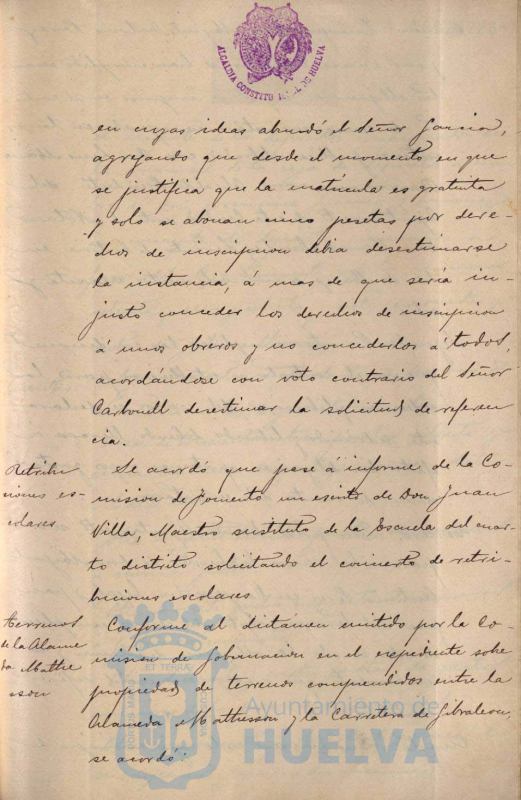 ALCALDIA CONSTITU AL DE HUELVA
en cuyas ideas abundó el Señor Garcia,
agregando que desde el momento en que
se justifica que la matrícula es gratuita
y solo se abonan cinco pesetas por dere-
chos de inscripcion debia desestimarse
la instancia, á mas de que sería in-
justo conceder los derechos de inscripcion
á unos obreros y no concederlos á todos,
acordándose con voto contrario del Señor
Carbonell desestimar la solicitud de referen
cia.
Retribu
ciones es-
colares
Se acordó que pase á informe de la Co-
mision de Fomento un escrito de Don Juan
Villa, Maestro sustituto de la Escuela del cuar-
to distrito solicitando el concierto de retri-
buciones escolares
terrenos
de la Alame
da Mathe
sson
Conforme al dictámen emitido por la Co-
mision de Gobernacion en el expediente sobre
propiedad de terrenos comprendidos entre la
Alameda Mathesson y la Carretera de Gibraleon,
se acordó:
Ayuntamiento de
HUELVA